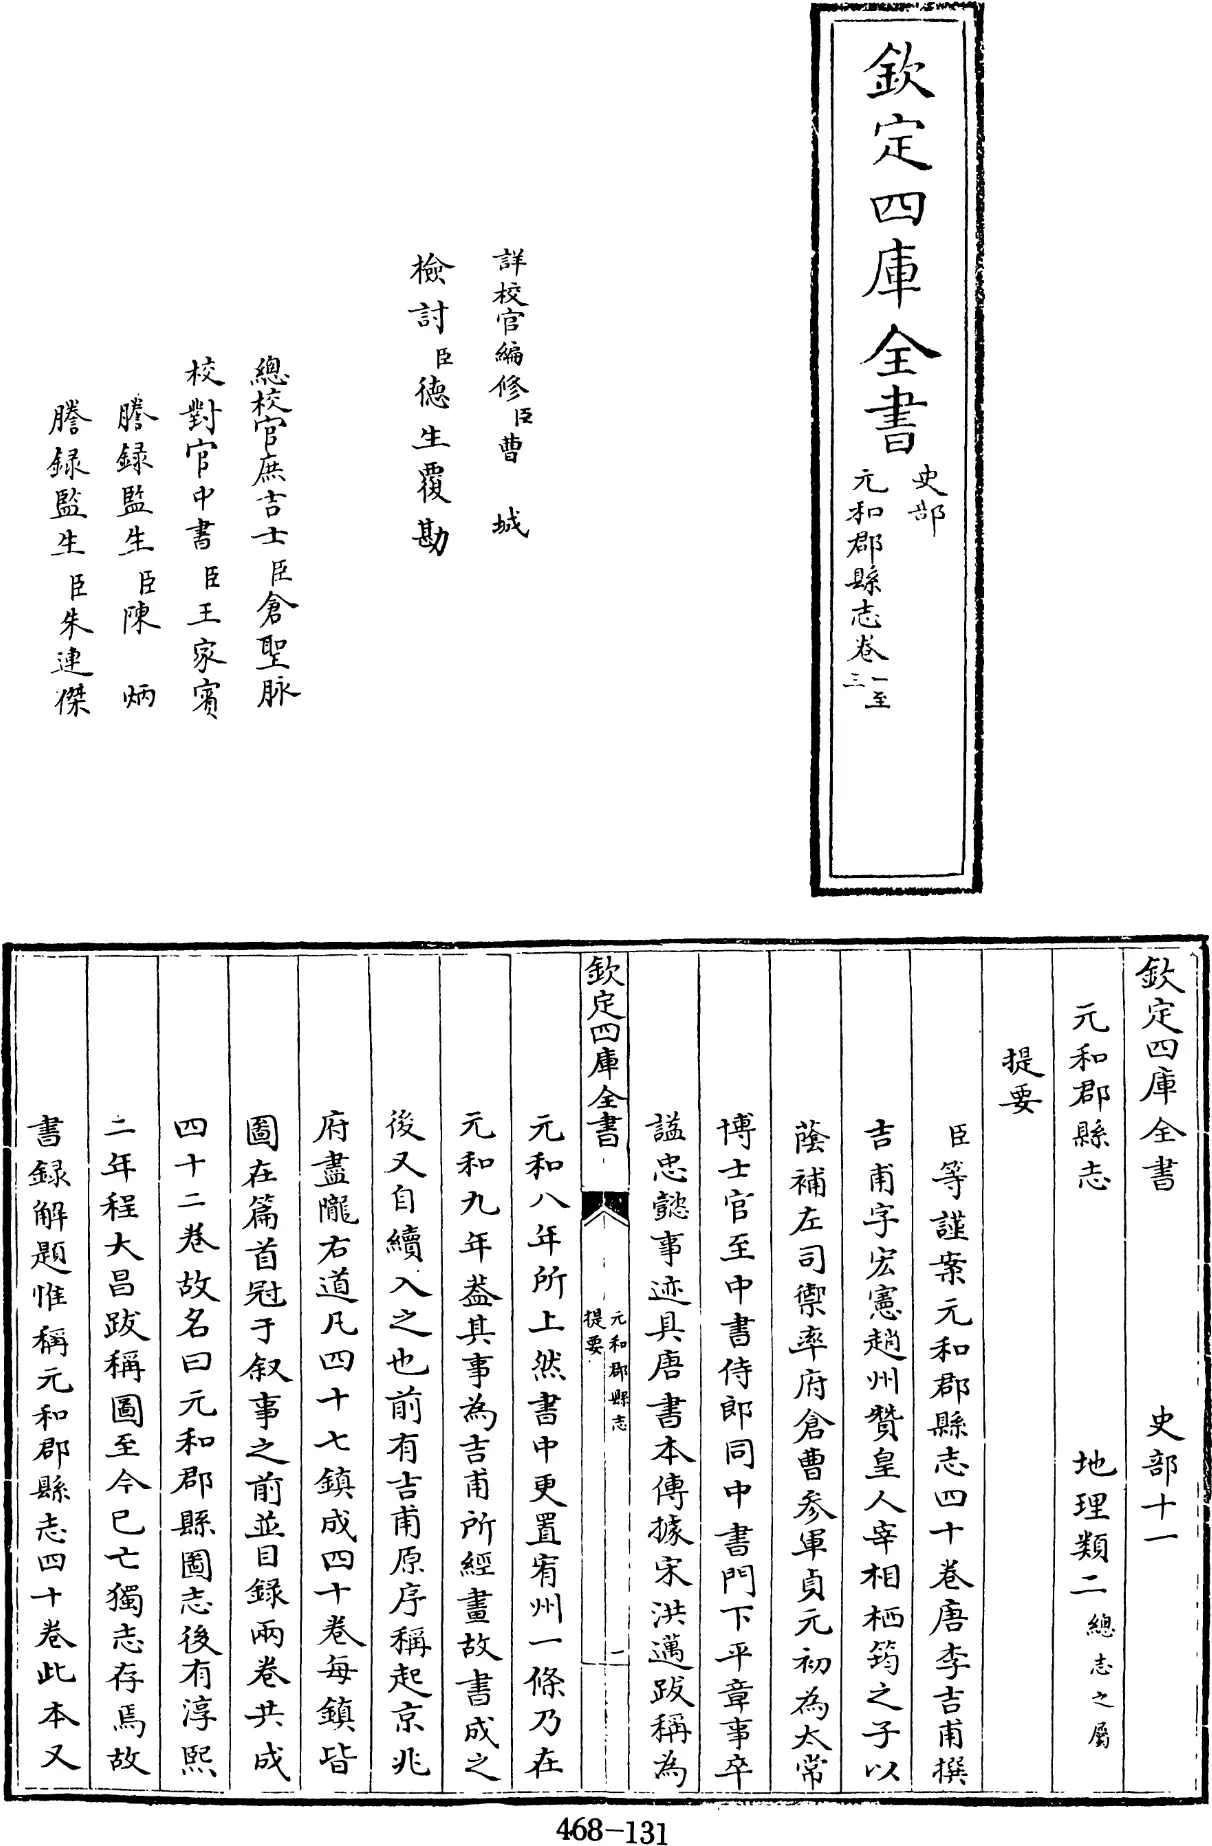 欽定四庫全書
史部
元和郡縣志卷一至三
詳校官編修臣曹城
檢討臣德生覆勘
總校官庶吉士臣倉聖脉
校對官中書臣王家賓
謄録監生臣陳炳
謄録監生臣朱連傑
欽定四庫全書 史部十一
元和郡縣志 地理類二總志之屬
提要
臣等謹案元和郡縣志四十卷唐李吉甫撰
吉甫字宏憲趙州贊皇人宰相栖筠之子以
蔭補左司禦率府倉曹參軍貞元初為太常
博士官至中書侍郎同中書門下平章事卒
謚忠懿事迹具唐書本傳據宋洪邁跋稱為
欽定四庫全書
元和郡縣志
提要
一
元和八年所上然書中更置宥州一條乃在
元和九年葢其事為吉甫所經畫故書成之
後又自續入之也前有吉甫原序稱起京兆
府盡隴右道凡四十七鎮成四十卷每鎮皆
圖在篇首冠于叙事之前並目録兩卷共成
四十二卷故名曰元和郡縣圖志後有淳熙
二年程大昌跋稱圖至今已亡獨志存焉故
書録解題惟稱元和郡縣志四十卷此本又
468-131